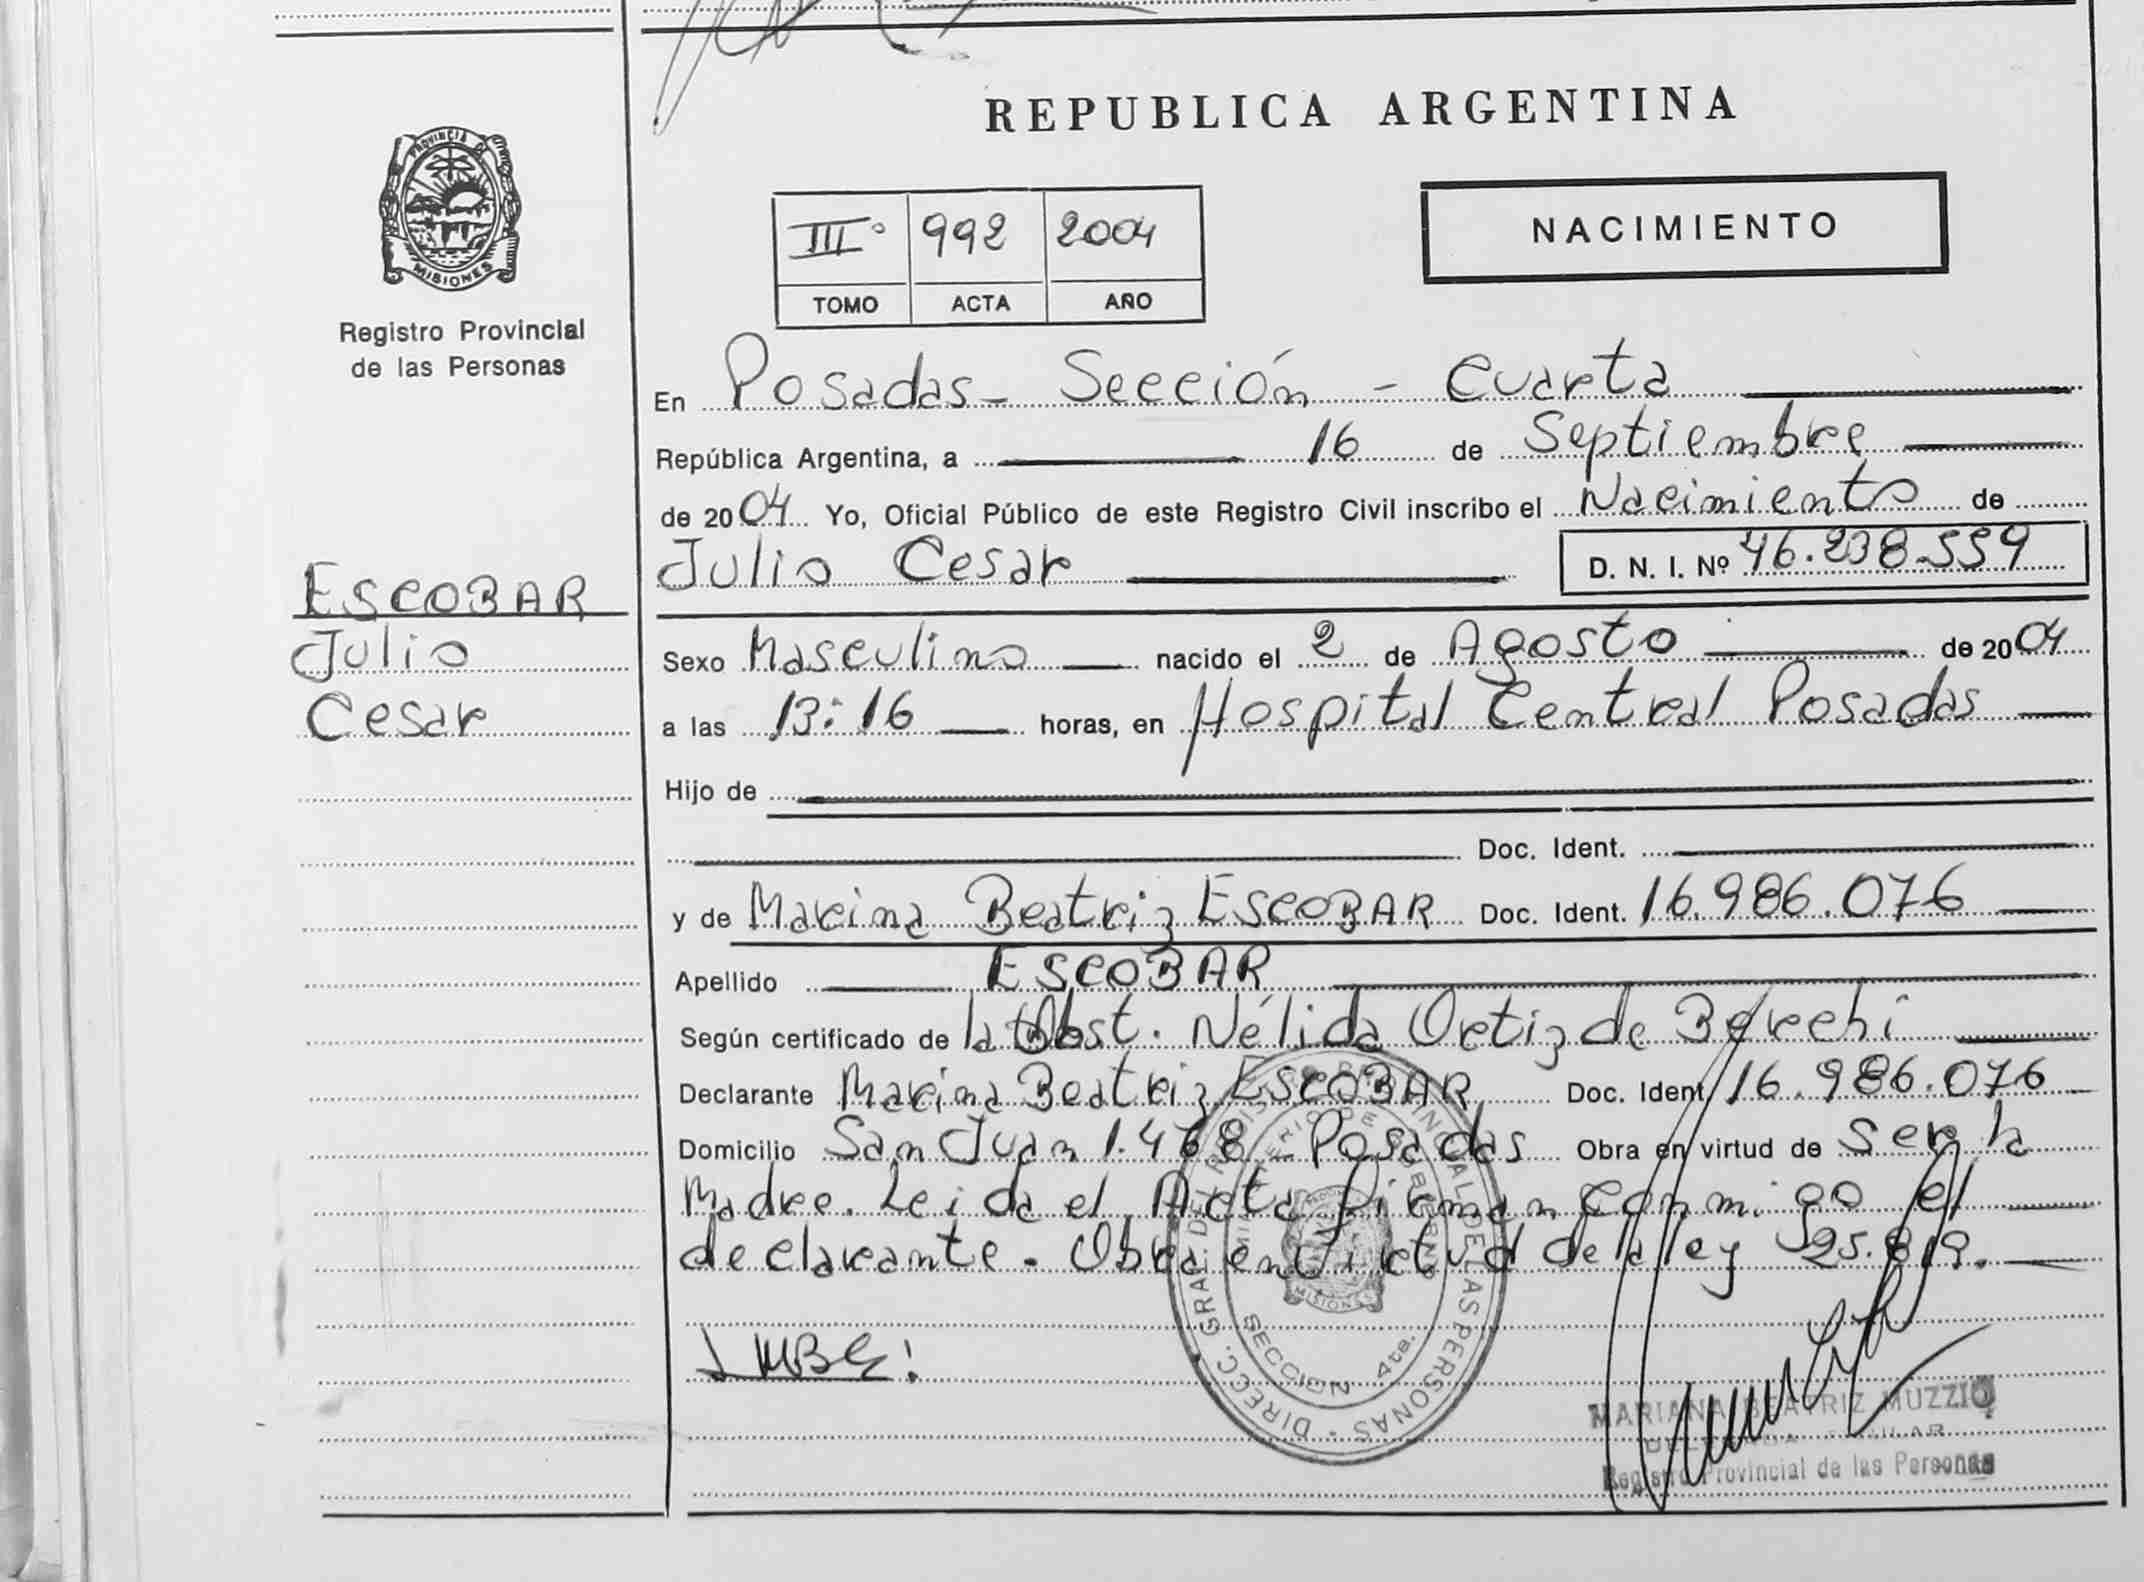 REPUBLICA ARGENTINA
PROVINCIA DE
MISIONES
Registro Provincial
de las Personas
NACIMIENTO
III° 992 2004
TOMO ACTA AÑO
En Posadas - Sección - Cuarta
República Argentina, a 16 de Septiembre
de 2004 Yo, Oficial Público de este Registro Civil inscribo el Nacimiento de
Julio Cesar D. N. I. Nº 46.238.559
ESCOBAR
Julio
Cesar
Sexo Masculino nacido el 2 de Agosto de 2004
a las 13:16 horas, en Hospital Central Posadas
Hijo de
Doc. Ident.
y de Marina Beatriz ESCOBAR Doc. Ident. 16.986.076
Apellido ESCOBAR
Según certificado de la Obst. Nélida Ortiz de
Declarante Marina Beatriz ESCOBAR Doc. Ident. 16.986.076
Domicilio San Juan 1.468 - Posadas Obra en virtud de ser la
Madre. Leida el Acta firman conmigo el
declarante. Obra en virtud de la ley 25.819.
DIRECC. GRAL. DEL REGISTRO PROVINCIAL DE LAS PERSONAS
MINISTERIO DE GOBIERNO
MISIONES
SECCION 4ta.
MARIANA BEATRIZ MUZZIO
DELEGADA TITULAR
Registro Provincial de las Personas